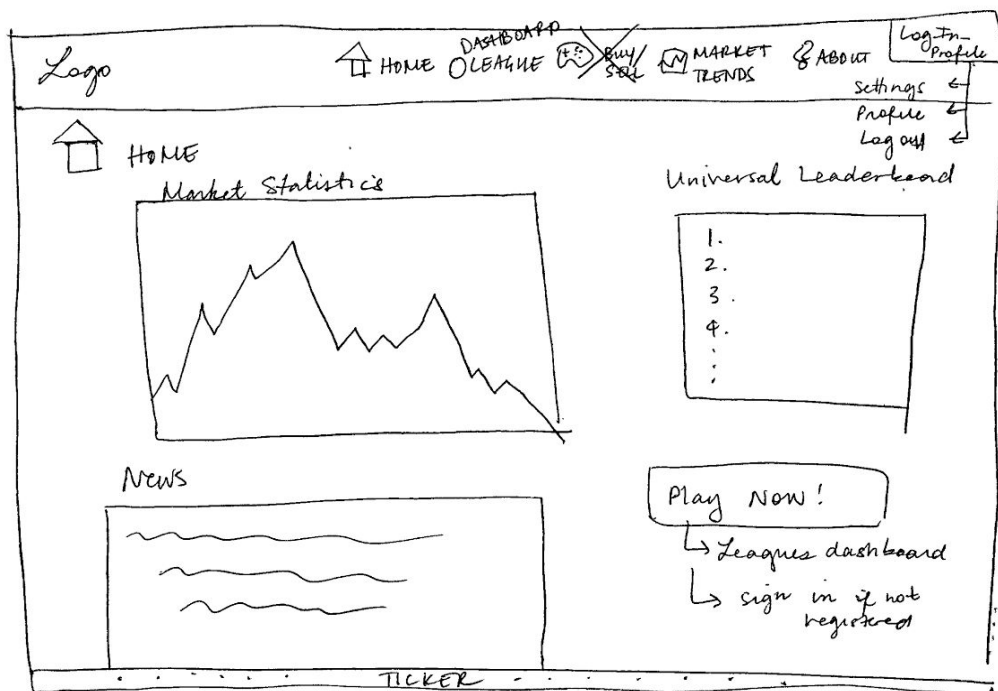 Logo
HOME
DASHBOARD
LEAGUE
BUY/
SELL
MARKET
TRENDS
ABOUT
Log-In-
Profile
Settings
Profile
Log out
HOME
Market Statistics
Universal Leaderboard
1.
2.
3.
4.
News
Play Now!
Leagues dashboard
sign in if not
registered
TICKER